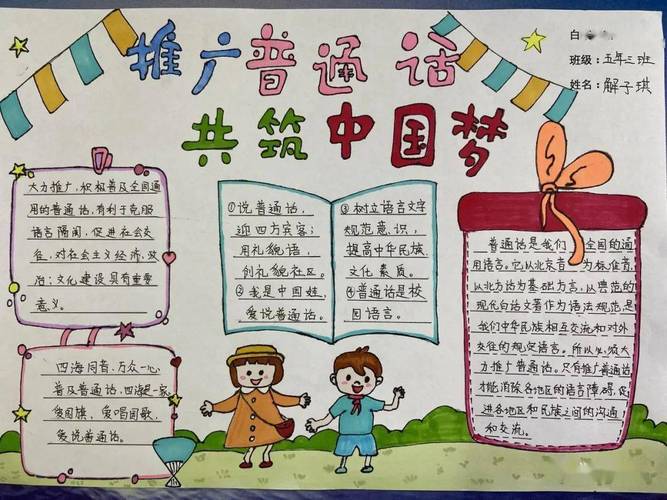 推广普通话
共筑中国梦
白
班级：五年三班
姓名：解子琪
大力推广，积极普及全国通
用的普通话，有利于克服
语言隔阂，促进社会交
往，对社会主义经济，政
治；文化建设具有重要
意义。
四海同音，万众一心
普及普通话，四海是一家
爱国旗，爱唱国歌，
爱说普通话。
①说普通话，
迎四方宾客；
用礼貌语，
创礼貌社区。
②我是中国娃，
爱说普通话。
③树立语言文字
规范意识，
提高中华民族
文化素质。
④普通话是校
园语言。
普通话是我们 全国的通
用语言。它以北京音 为标准音，
以北方话为基础方言，以典范的
现代白话文著作为语法规范是
我们中华民族相互交流和对外
交往的规定语言。所以必须大
力推广普通话。只有推广普通话
才能消除各地区的语言障碍，促
进各地区和民族之间的沟通
和交流。